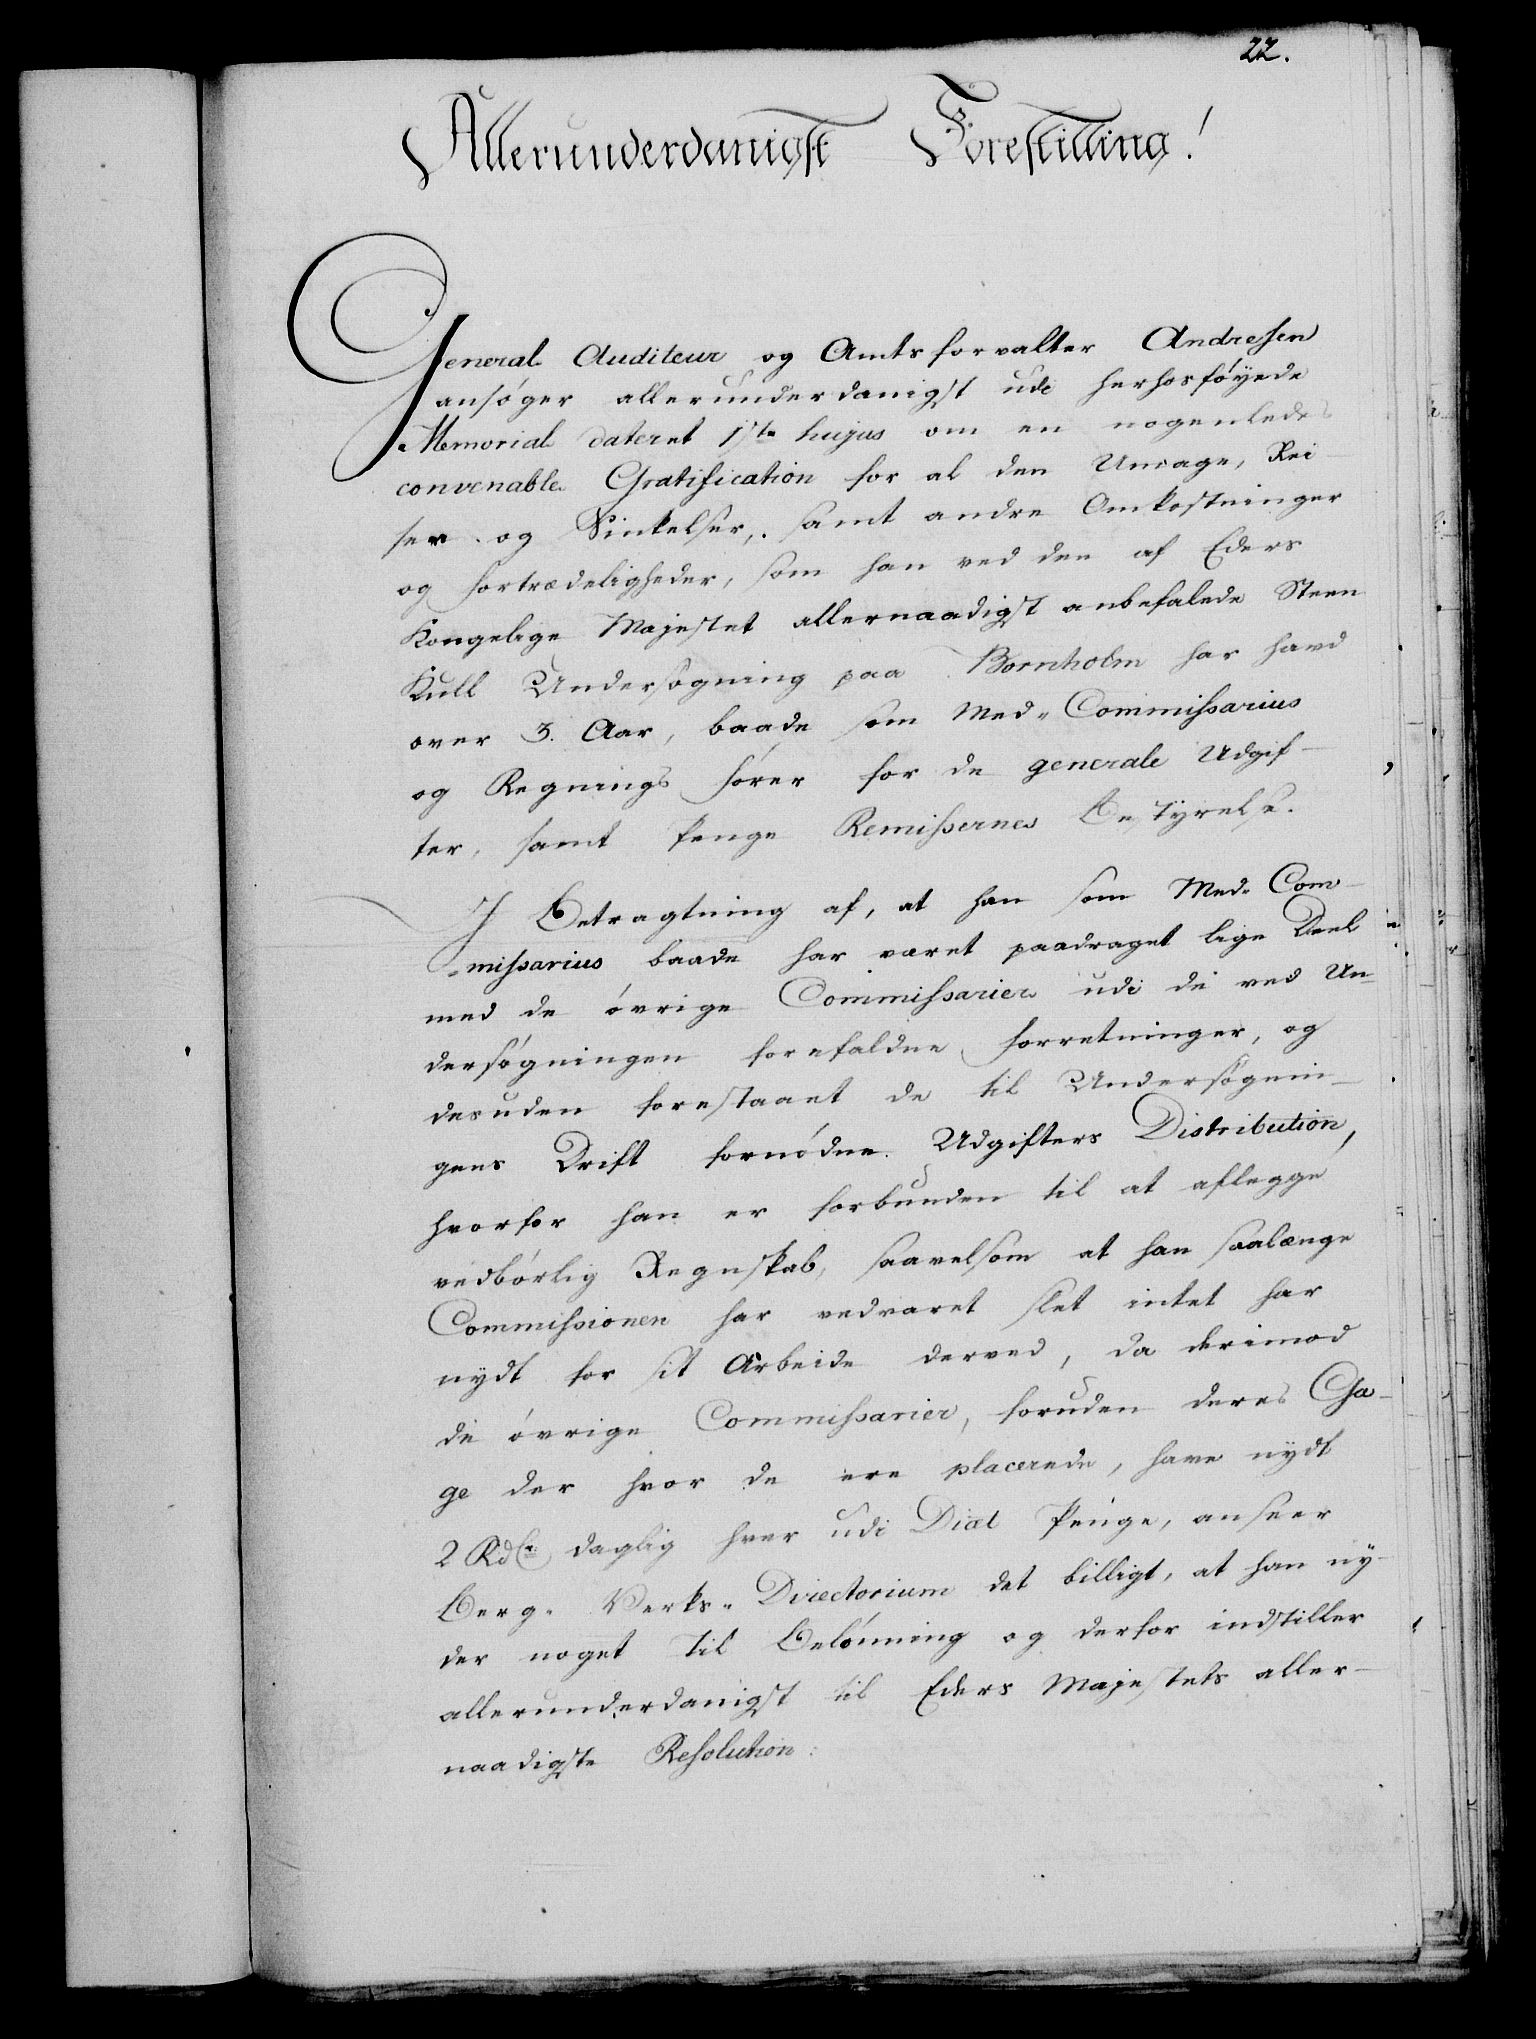 22.
Allerunderdanigst Forestilling!
General Auditeur og Amtsforvalter Andresen
ansøger allerunderdanigst udi herhosføyede
Memorial dateret 1ste hujus om en nogenledes
convenable Gratification for al den Umage, Rei-
ser og Vinkelser, samt andre Omkostninger
og Fortrædeligheder, som han ved den af Eders
Kongelige Majestet allernaadigst anbefalede Steen
Kull Undersøgning paa Bornholm har havd
over 3. Aar, baade som Med-Commissarius
og Regnings fører for de generale Udgif-
ter, samt Penge Remissernes Bestyrelse.
I Betragtning af, at han som Med-Com-
missarius baade har været paadraget lige Deel
med de øvrige Commissarier udi de ved Un-
dersøgningen forefaldne Forretninger, og
desuden forestaaet de til Undersøgnin-
gens Drift fornødne Udgifters Distribution,
hvorfor han er forbunden til at aflegge
vedbørlig Regnskab, saavelsom at han saalænge
Commissionen har vedvaret slet intet har
nydt for sit Arbeide derved, da derimod
de øvrige Commissarier, foruden deres Ga-
ge der hvor de ere placerede, have nydt
2 Rdlr daglig hver udi Diæt Penge, anseer
Berg-Verks-Directorium det billigt, at han ny-
der noget til Belønning og derfor indstiller
allerunderdanigst til Eders Majestets aller-
naadigste Resolution: